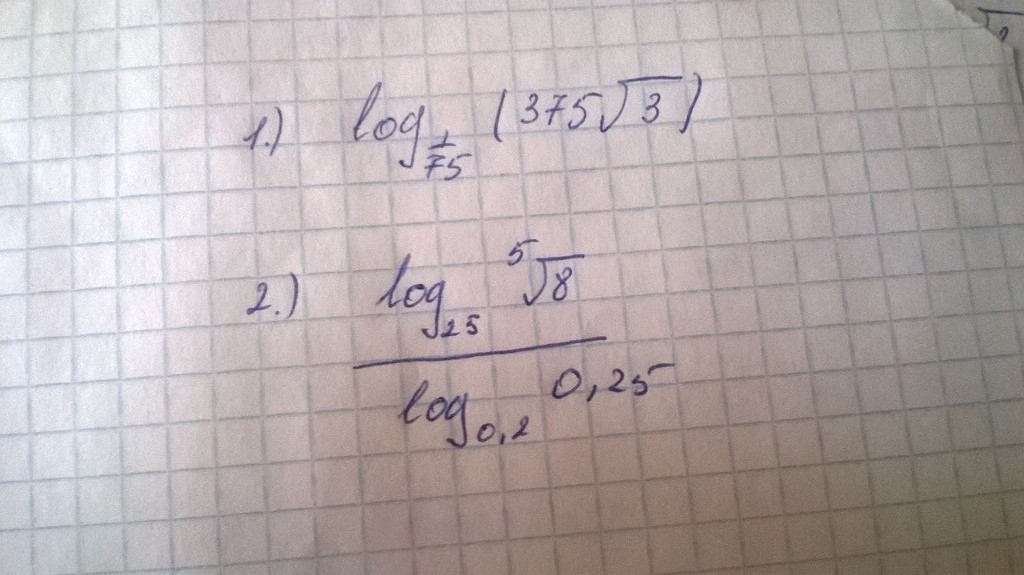 1.) log_{1/75} (375√3)
2.) log_{25} ⁵√8
log_{0,2} 0,25